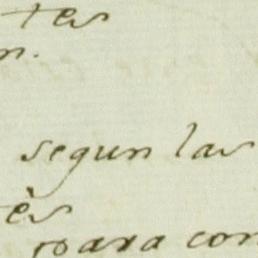 tes
n.
segun las
tès
para con